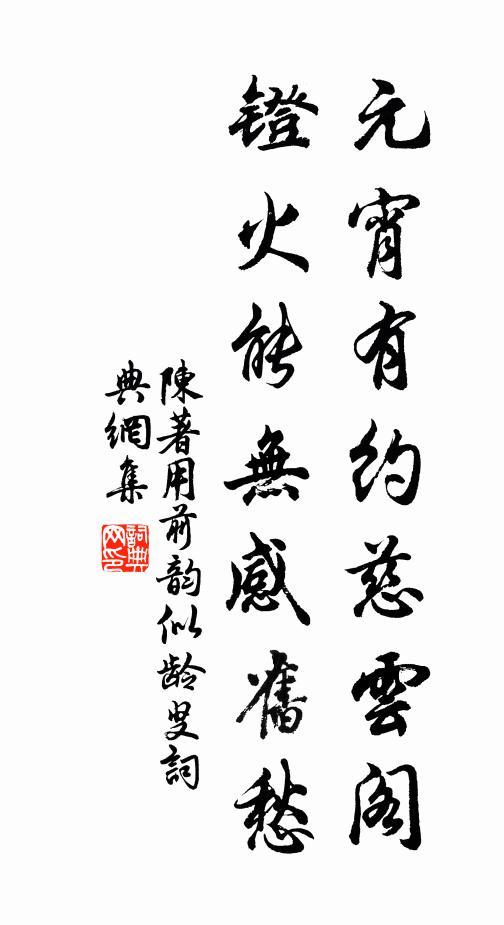 元宵有約慈雲阁
鐙火能無感舊愁
陳著用前韵似龄叟詞
典網集
詞典网印